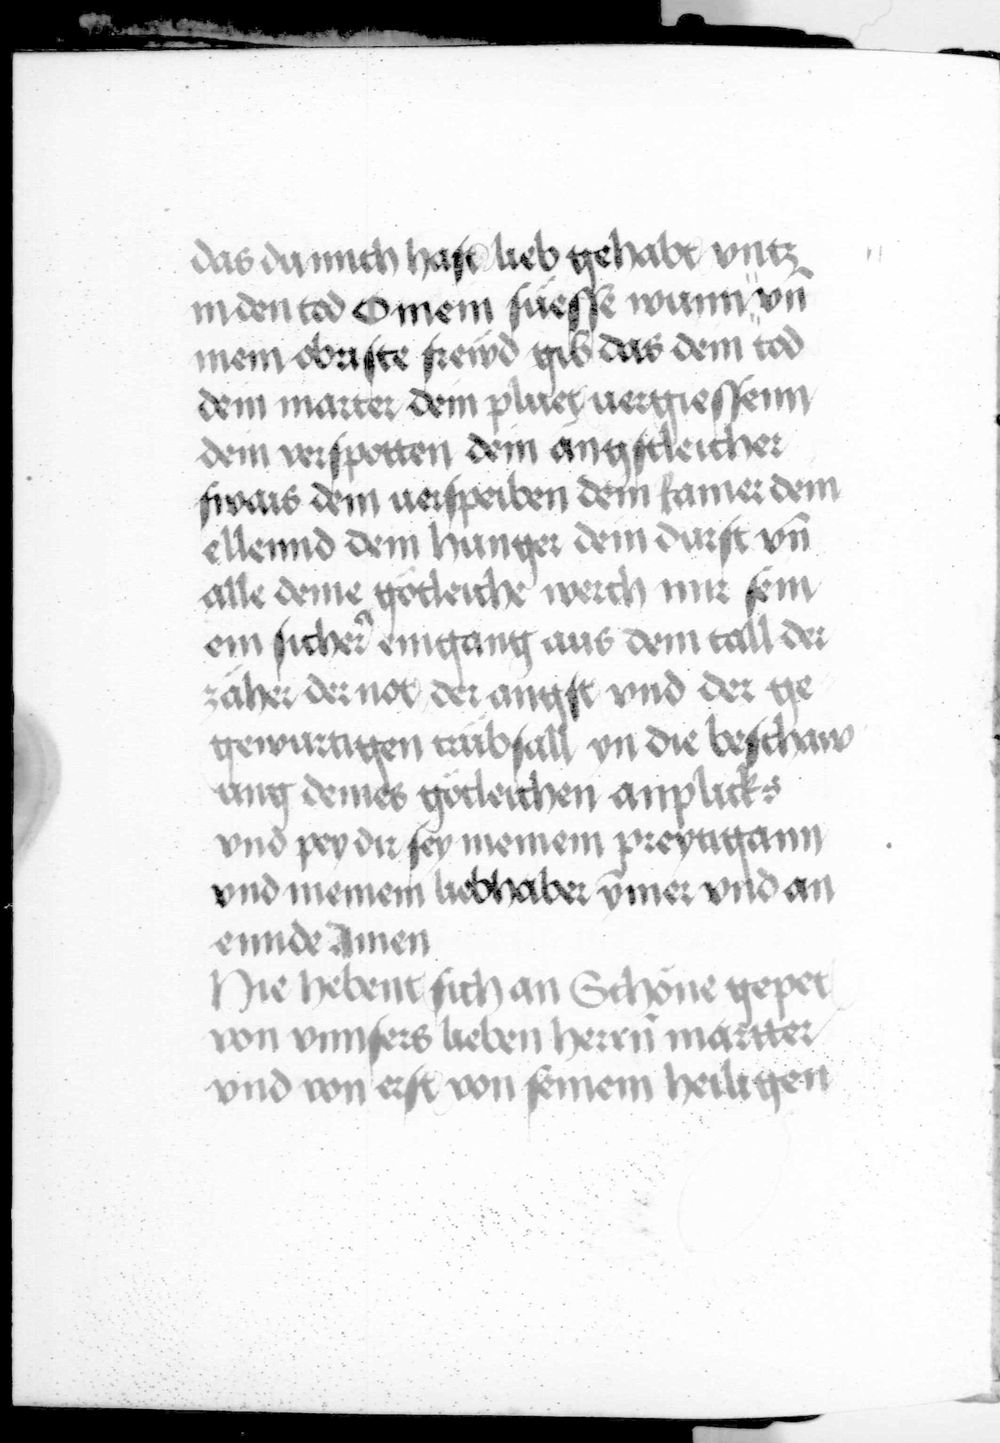 das du mich hast lieb gehabt vntz
in den tod O mein süesse wunn vn̄
mein obriste frewd gib das dein tod
dein marter dein pluet uergiessenn
dein verspotten dein ängstleicher
swais dein uerspeiben dein Jamer dein
ellennd dein hunger dein durst vn̄
alle deine götleiche werch mir sein
ein sicher eingang aus dem tall der
zäher der not der angst vnd der ge
gewurtigen trübsall vn die beschaw
ung deines götleichen anplicks
vnd pey dir sey meinem preytigann
vnd meinem liebhaber ymer vnd an
ennde Amen
Hie hebent sich an Schöne gepet
von vnnsers lieben herrn̄ martter
vnd von erst von seinem heiligen